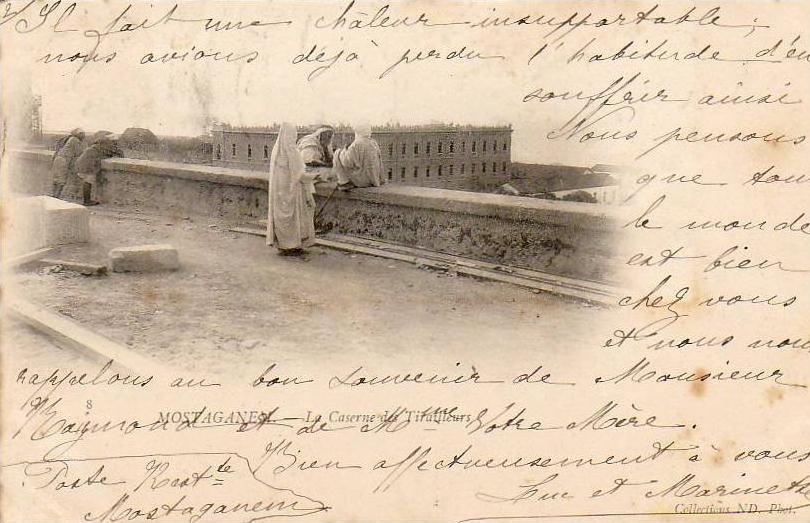 Il fait une chaleur insupportable ;
nous avions déjà perdu l'habitude d'en
souffrir ainsi
Nous pensons
que tout
le monde
est bien
chez vous
et nous nous
rappelons au bon souvenir de Monsieur
8 MOSTAGANEM. — La Caserne des Tirailleurs
Raymond et de Mme Votre Mère.
Bien affectueusement à vous
Poste Restte
Mostaganem
Luc et Marinette
Collections ND. Phot.